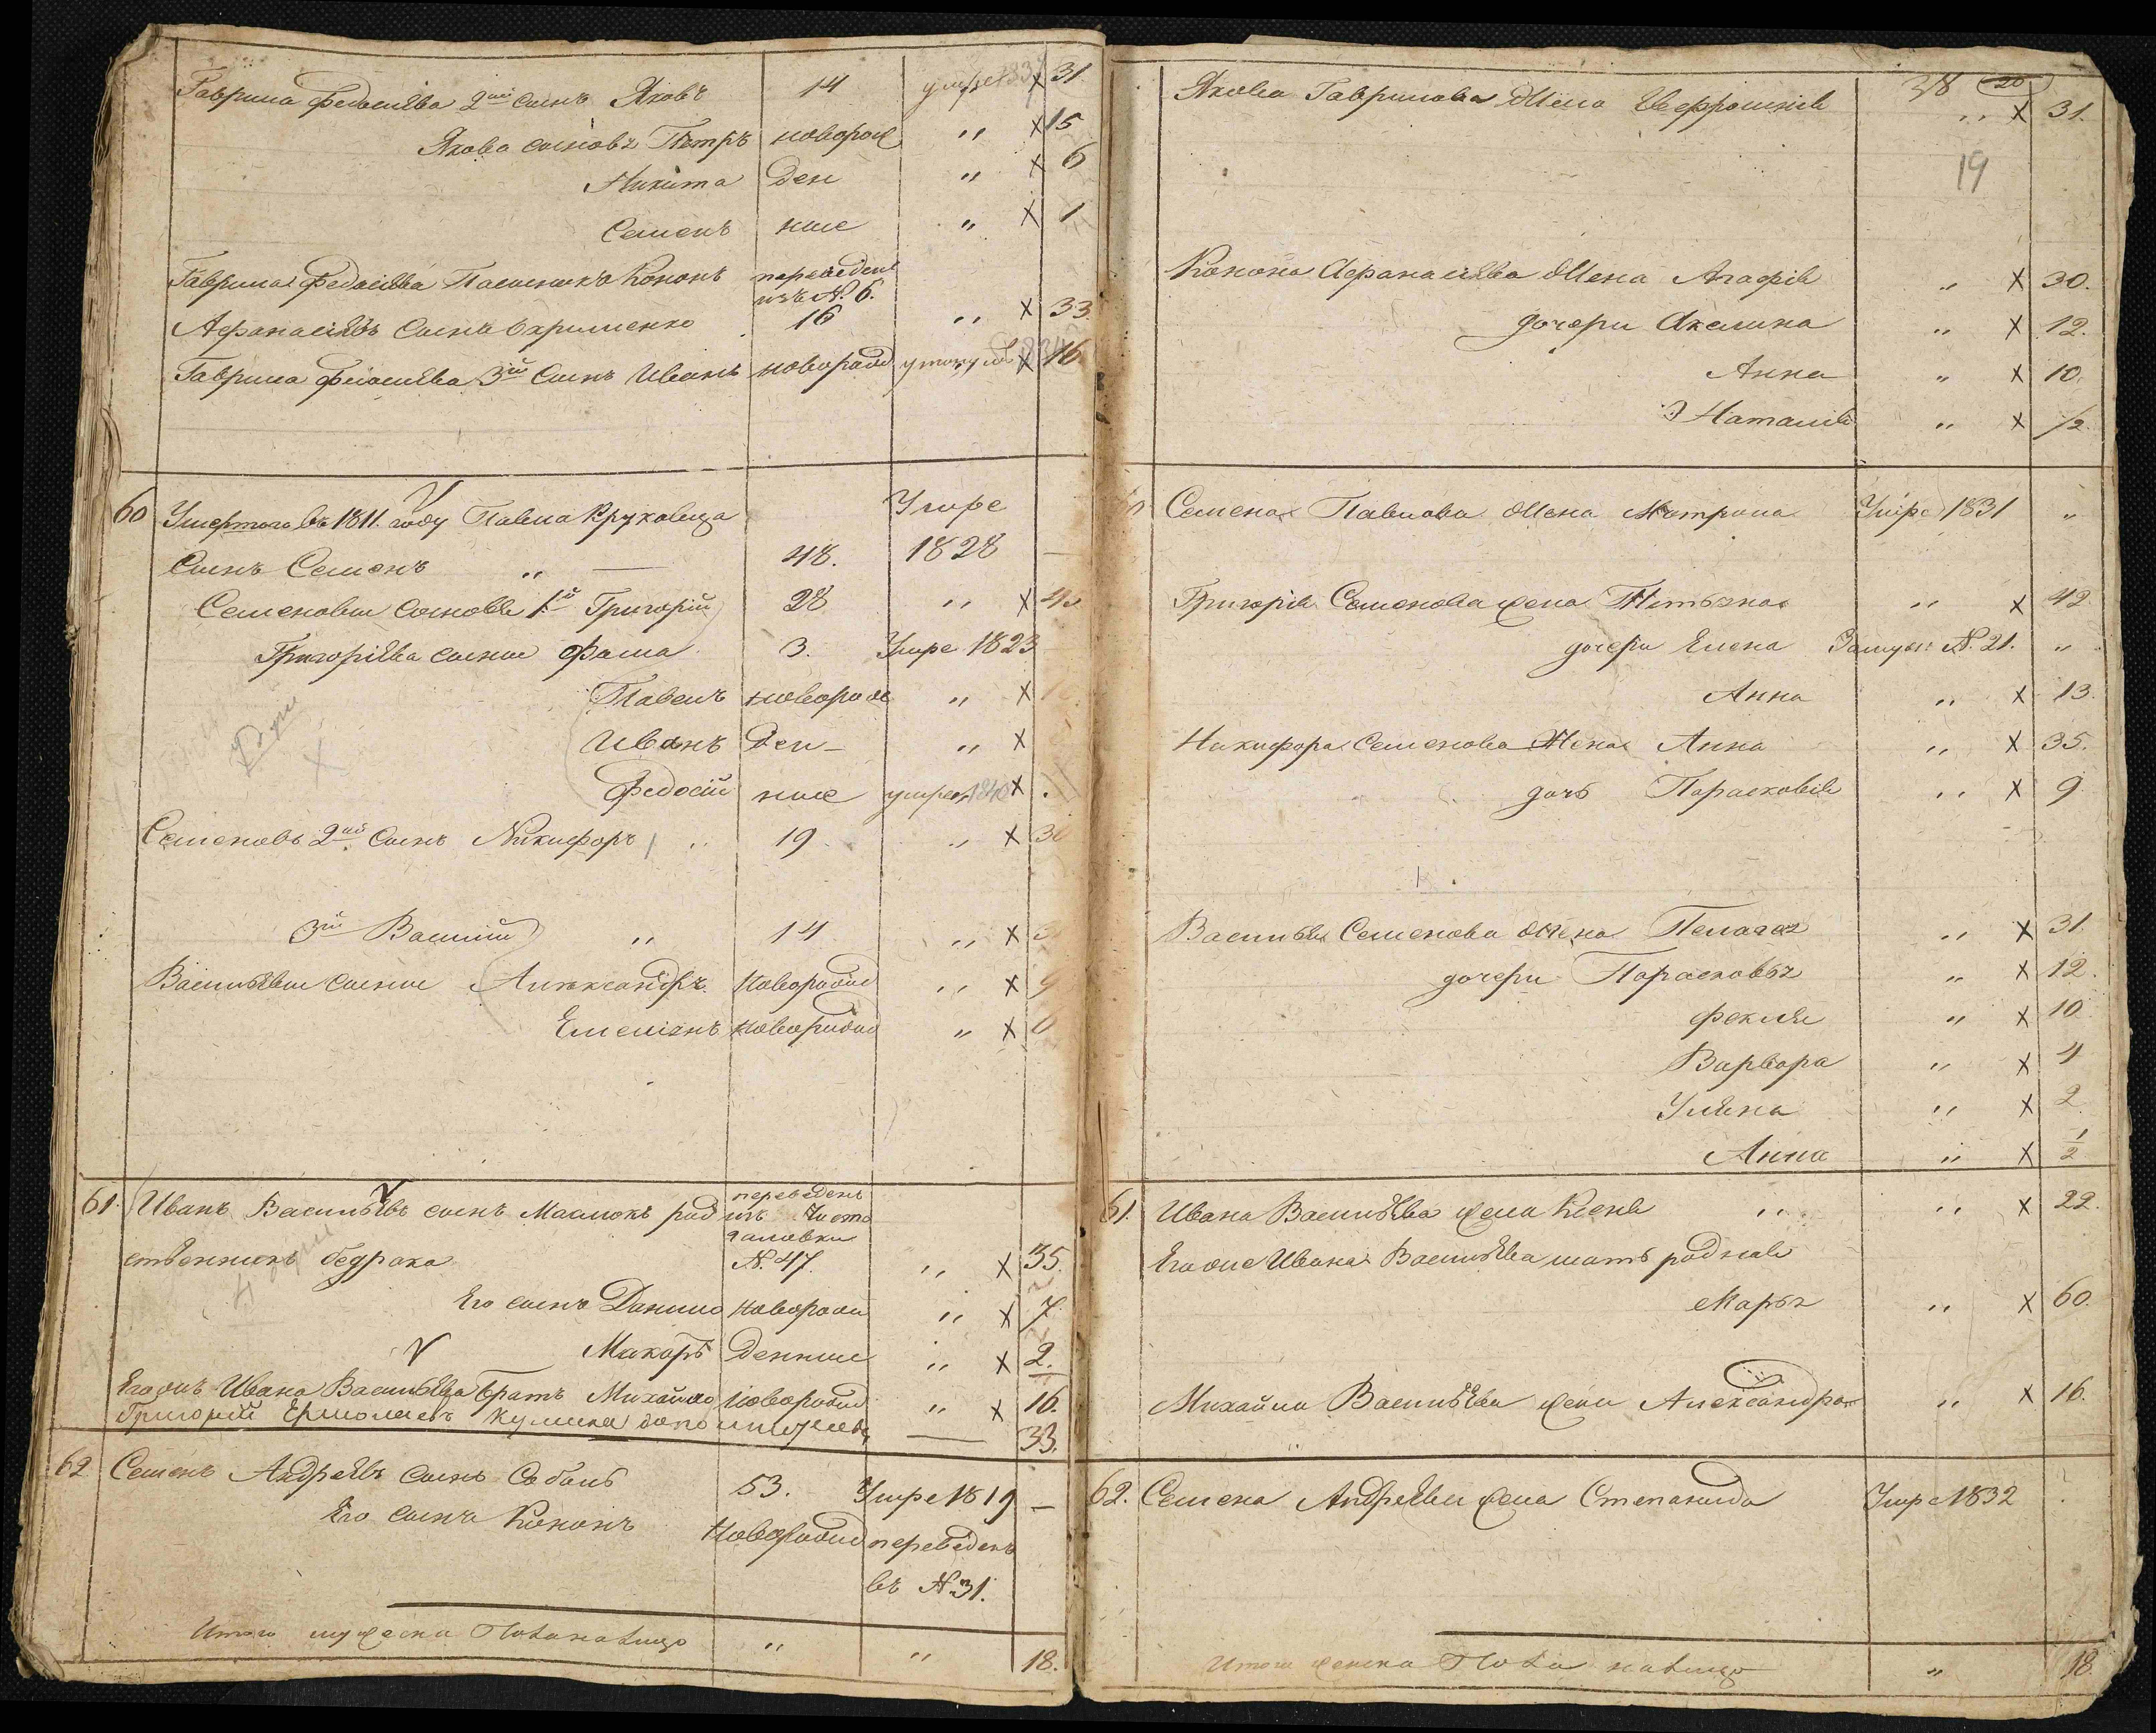 Гаврила Федосѣева 2ий сынъ Яковъ 14 умре 31.
Якова сыновъ Петръ новорож „ x 15
Никита ден „ x 6
Семенъ ные „ x 1
Гаврила Федосѣева Пасынокъ Кононъ переведенъ
изъ N. 6.
Афанасіевъ Сынъ 16 „ x 33.
Гаврила Федосѣева 3й Сынъ Иванъ новорожд x 16
60 Умершаго въ 1811. году Павла Круковца Умре
Сынъ Семенъ „ — 48. 1828 —
Семеновы сыновья 1й Григорій 28 „ x
Григорьева сынъ Фома 3. Умре 1823
Павелъ новорож „ x
Иванъ ден- „ x
Федосій ные умре 1840 x
Семеновъ 2ий Сынъ Никифоръ „ 19 „ x
3й Василій „ 14 „ x
Васильевы сыны Александръ Новорожд „ x 9
Емеліянъ новорожд „ x
61. Иванъ Васильевъ сынъ Маслюкъ род
переведенъ
изъ
N. 47.
ственникъ бедрака „ x 35.
Его сынъ Данило новорожд „ x 7.
Макаръ денные „ x 2.
Егожъ Ивана Васильева братъ Михайло Новорожд „ x 16.
Григорій Ермолаевъ — 33.
62 Семенъ Андреевъ сынъ Соболь 53. Умре 1819 —
Его сынъ Кононъ Новорожд переведенъ
въ N. 31.
Итого мужеска Пола наличцо „ „ 18.
38 20
Якова Гаврилова Жена Евфросинія „ x 31.
19
Конона Афанасіева Жена Агафія „ x 30.
дочери Акелина „ x 12.
Анна „ x 10.
Наталія „ x 1/2.
Семена Павлова Жена Матрона Умре 1831 „
Григорія Семенова жена Тетьяна „ x 42.
дочери Елена Замуж N. 21. „
Анна „ x 13.
Никифора Семенова Жена Анна „ x 35.
дочь Парасковія „ x 9
Василья Семенова Жена Пелагея „ x 31.
дочери Парасковья „ x 12.
Фекла „ x 10.
Варвара „ x 4
Уляна „ x 2.
Анна „ x 1/2
61. Ивана Васильева жена Ксенія „ „ x 22.
Егоже Ивана Васильева мать родная
Марья „ x 60.
Михайла Васильева жена Александра „ x 16.
62. Семена Андреева жена Степанида Умре 1832
Итого женска Пола наличцо „ 18.